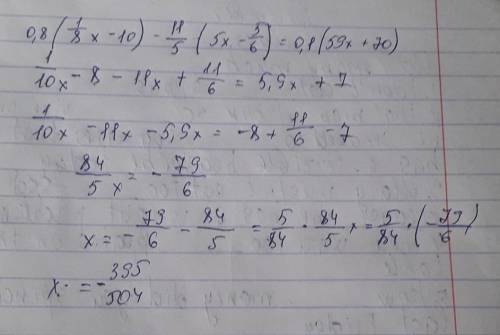 0,8(1/8x - 10) - 11/5(5x - 5/6) = 0,1(59x + 70)
1/10x - 8 - 11x + 11/6 = 5,9x + 7
1/10x - 11x - 5,9x = -8 + 11/6 - 7
84/5x = -79/6
x = -79/6 - 84/5 = 5/84 · 84/5x = 5/84 · (-79/6)
x · = -395/504